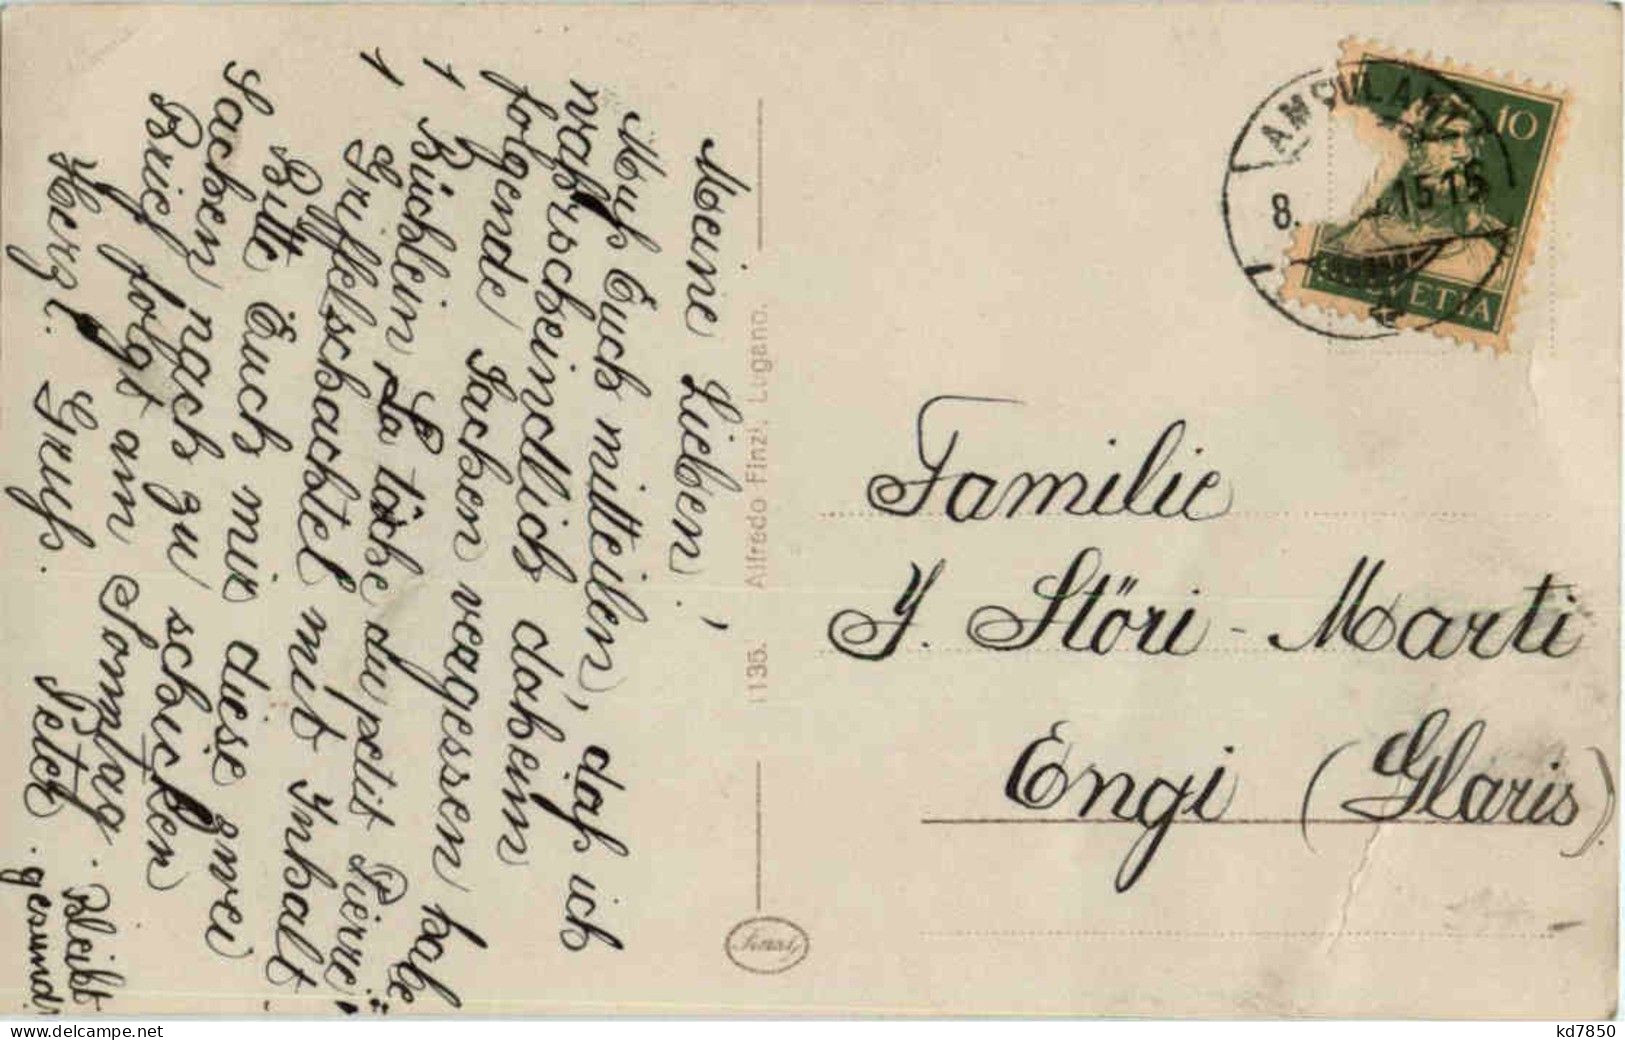 Meine Lieben!
Muss Euch mitteilen, dass ich
wahrscheindlich daheim
folgende Sachen vergessen habe
1 Büchlein „La tâche du petit Pierre“
1 Griffelschachtel mit Inhalt -
Bitte Euch mir diese zwei
Sachen nach zu schicken
Brief folgt am Sonntag. Bleibt
Herzl. Gruss. Peter. gesund!
1135. Alfredo Finzi, Lugano.
Finzi
AMBULANT
8.
1515
10
HELVETIA
Familie
J. Störi-Marti
Engi (Glaris)
kd7850